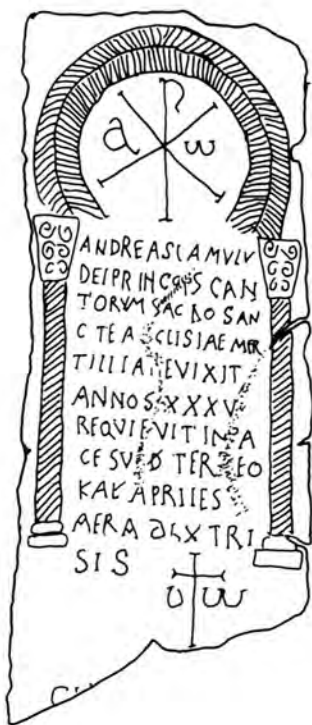 a ω
ANDREAS FAMVLV
DEI PRINCEPS CAN
TORVM SACRO SAN
CTE AECLISIAE MER
TILLIANE VIXIT
ANNOS XXXV
REQVIEVIT IN PA
CE SVB D TERTEO
KAL APRILES
AERA DLX TRI
SIS
ω